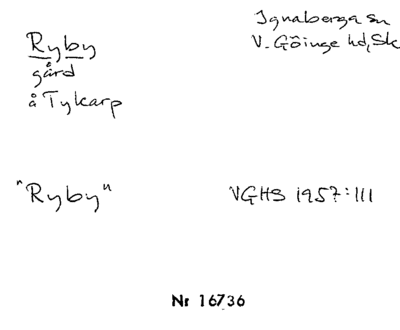 Ryby
gård
å Tykarp
Ignaberga sn
V. Göinge hd, Sk
"Ryby"
VGHS 1957:III
Nr 16736